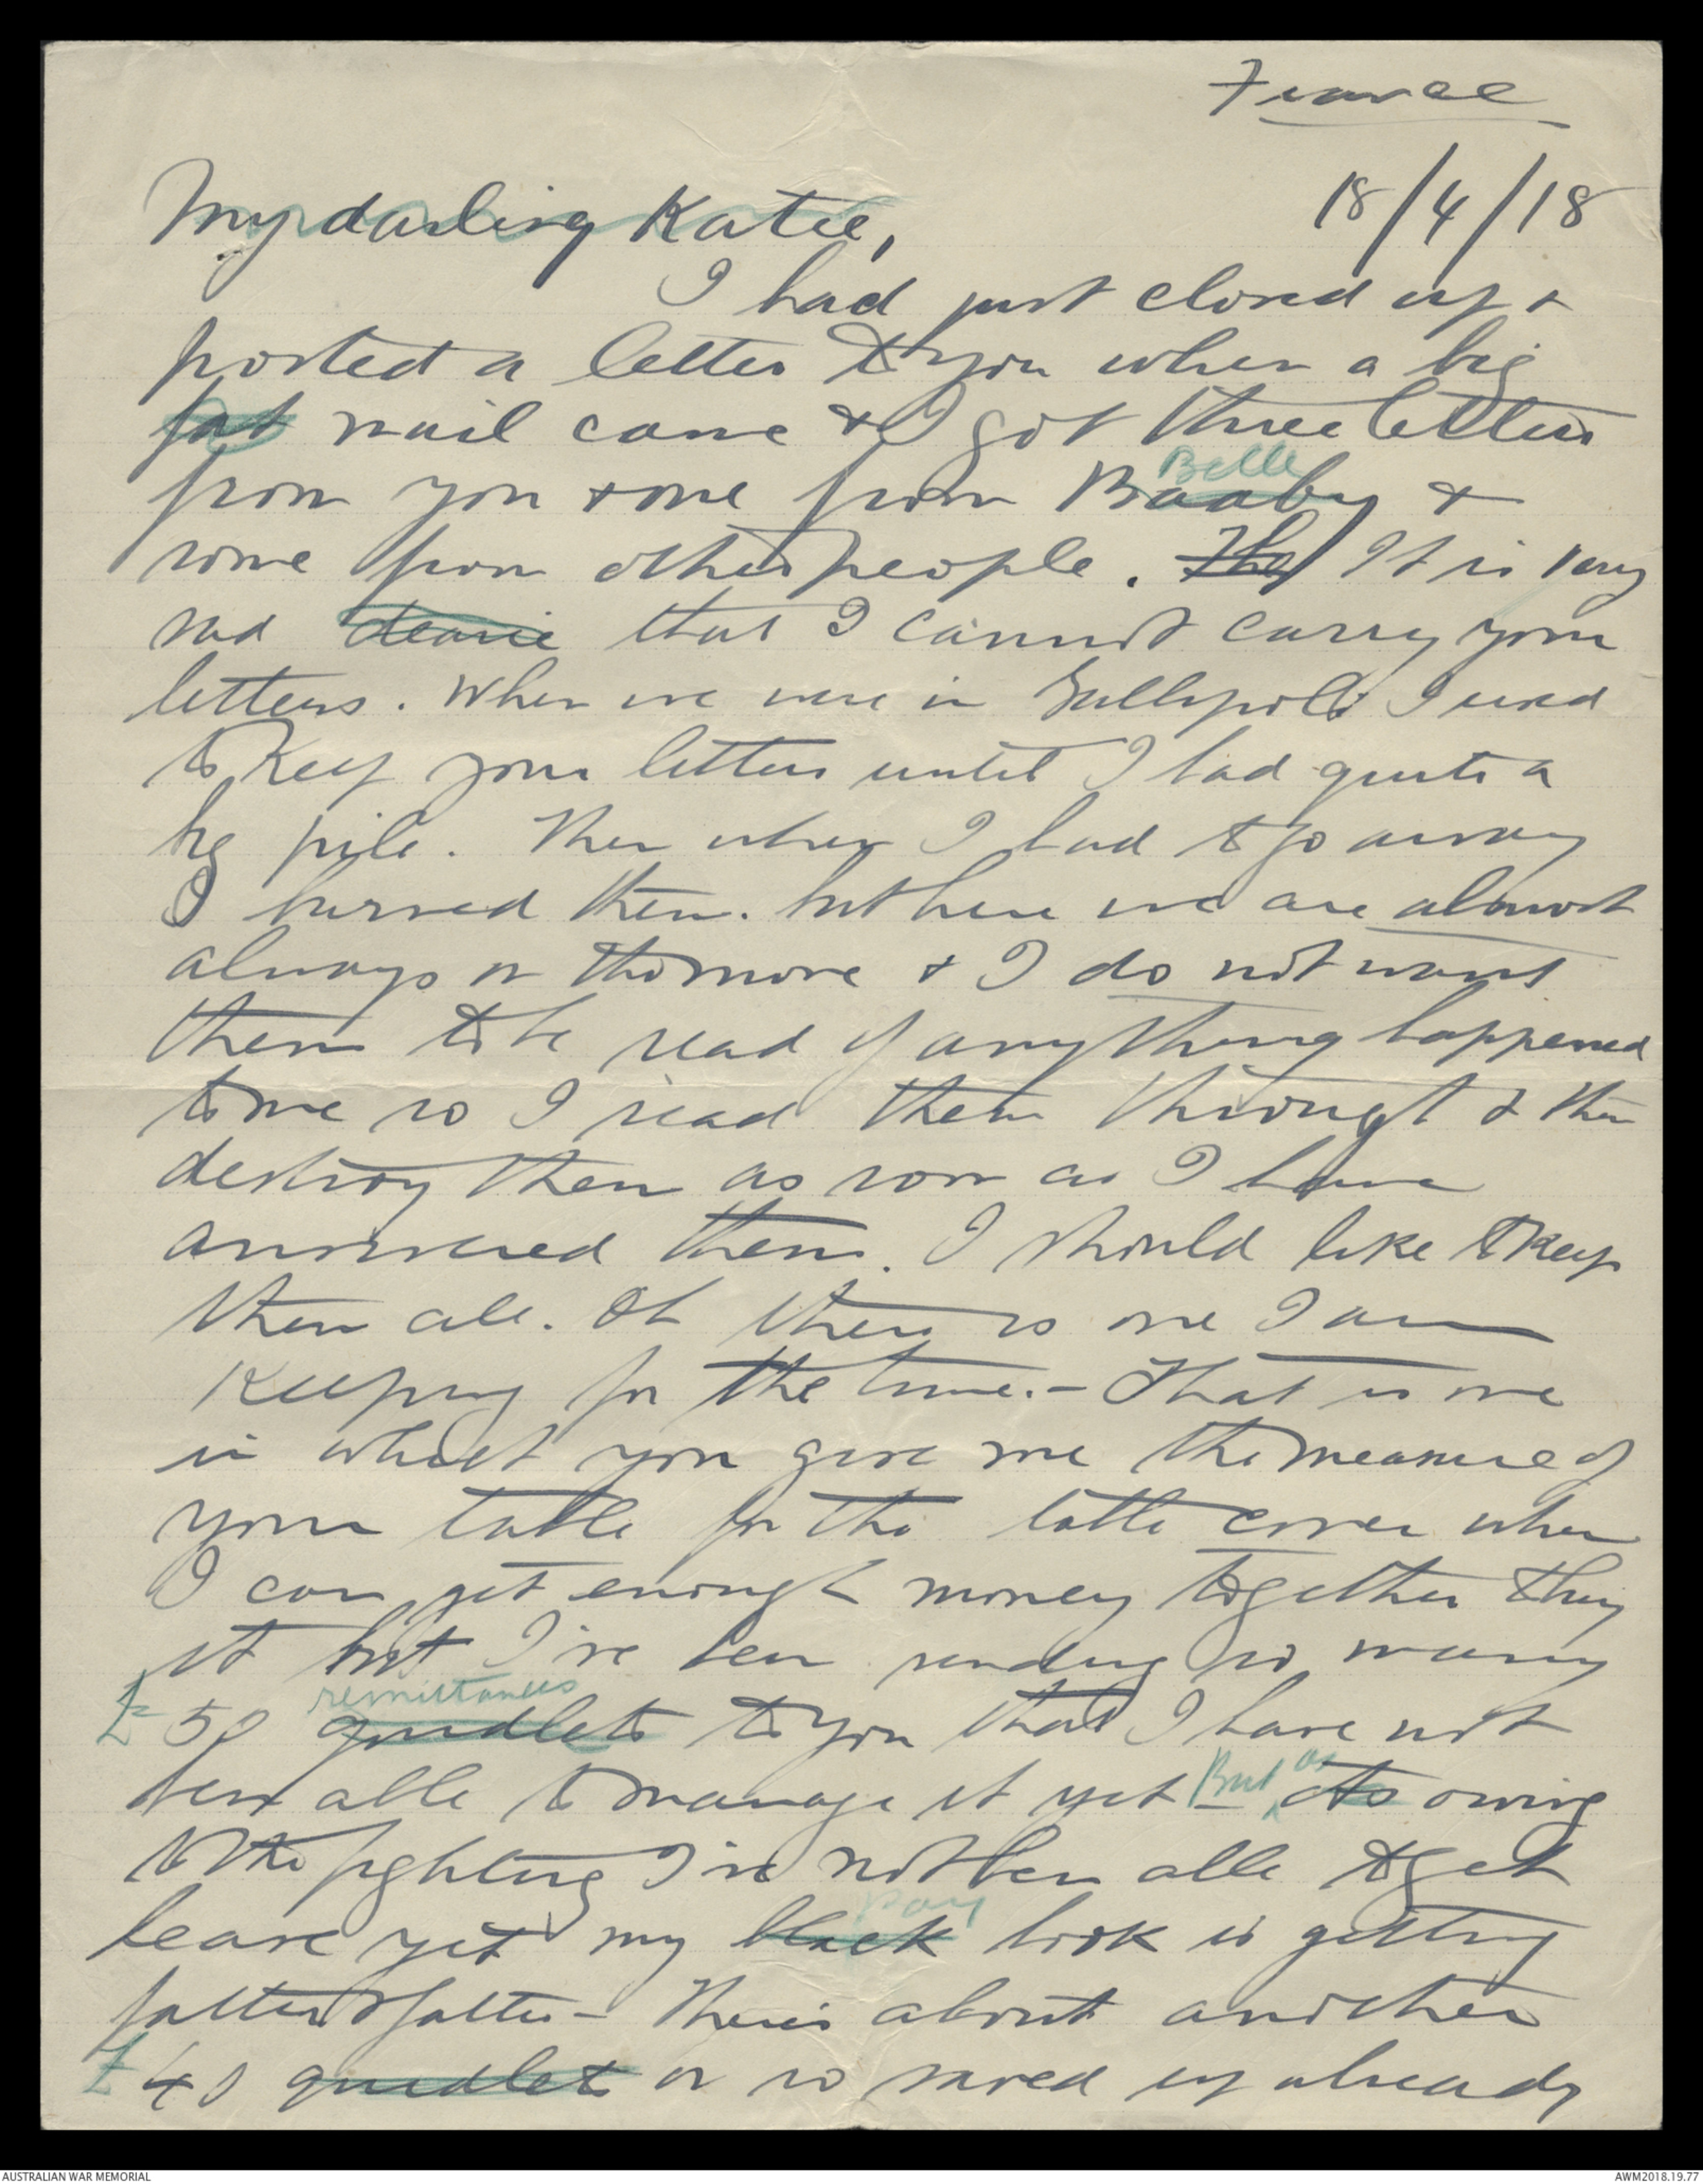 France
18/4/18
My darling Katie,
I had just closed up &
posted a letter to you when a big
fat mail came & I got three letters
from you & one from Baaby &
Belle
some from other people. The It is very
sad dearie that I cannot carry your
letters. When we were in Gallipoli I used
to keep your letters until I had quite a
big pile. Then when I had to go away
I burned them. but here we are almost
always on the move & I do not want
them to be read if anything happened
to me so I read them through & then
destroy them as soon as I have
answered them. I should like to keep
them all. Oh there is one I am
keeping for the time. - That is one
in which you give me the measure of
your table for the table cover when
I can get enough money together to buy
it but I've been sending so many
£ 50 quidlets to you that I have not
remittances
been able to manage it yet - But as Its owing
to the fighting I've not been able to get
leave yet my black book is getting
pay
fatter & fatter - There's about another
£ 40 quidlets or so saved up already
AUSTRALIAN WAR MEMORIAL
AWM2018.19.77